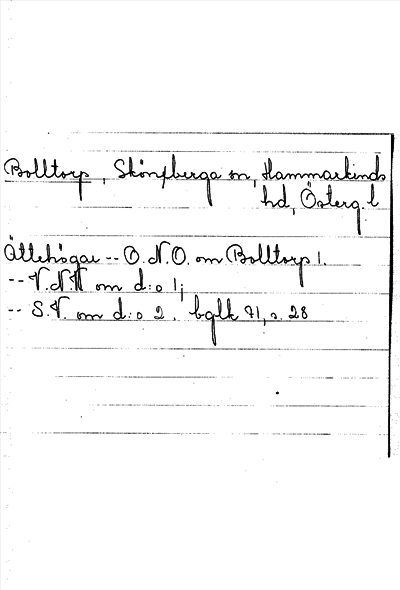 Bolltorp, Skönberga sn, Hammarkinds
hd, Österg. l
Ättehögar -- O.N.O. om Bolltorp 1.
-- V.N.V om d:o 1;
-- S.V. om d:o 2. bglk 71, s. 28